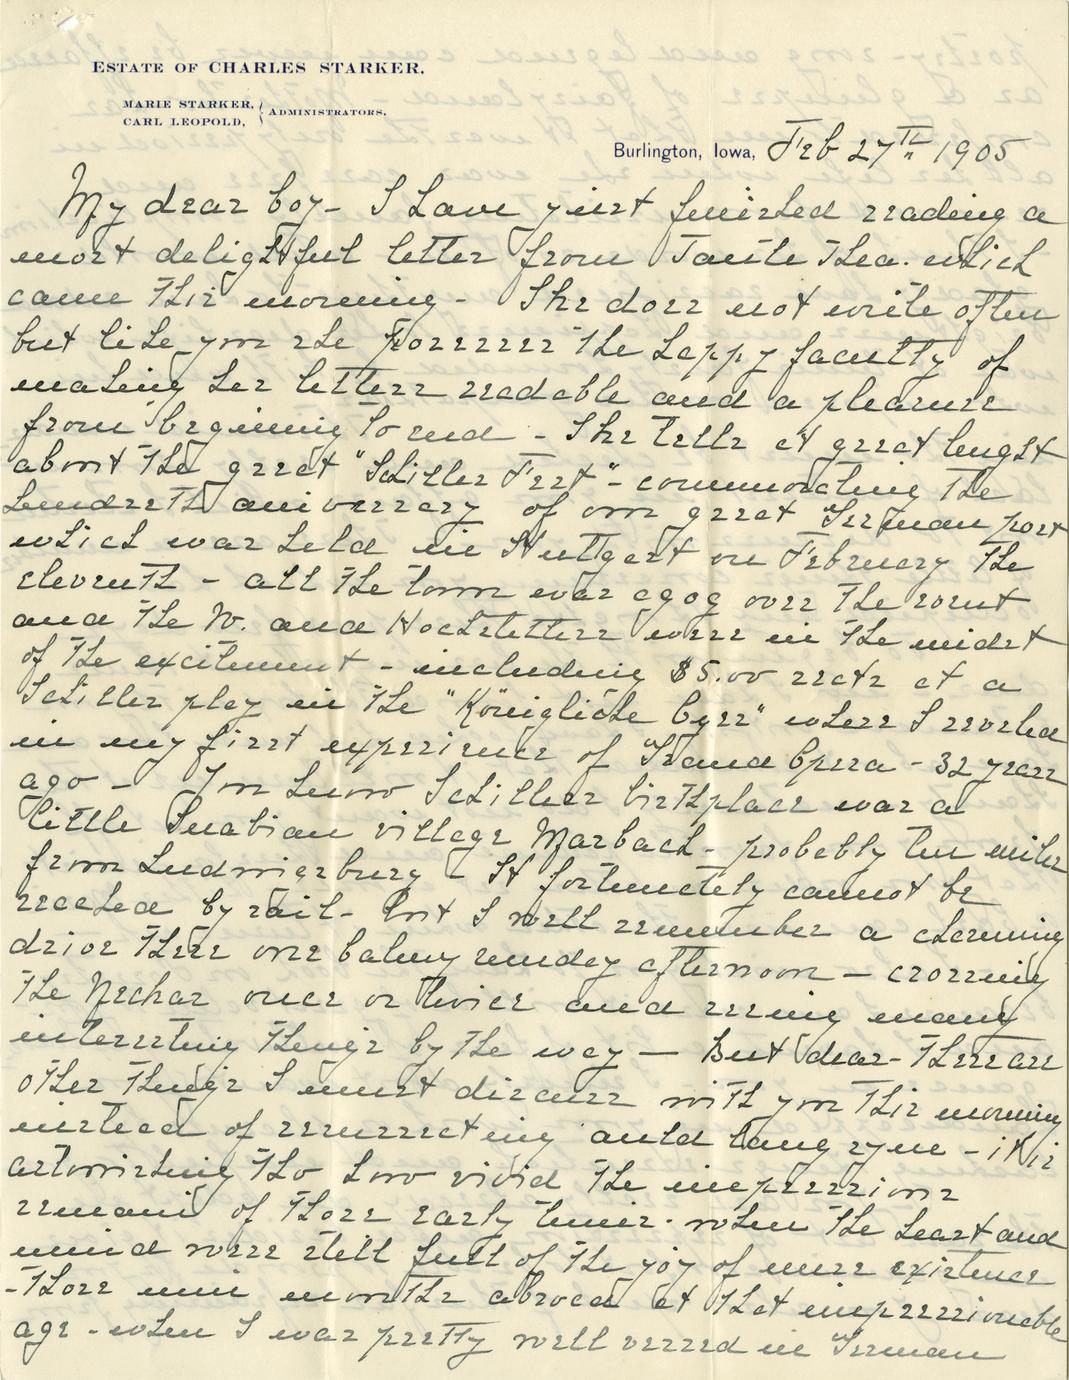 ESTATE OF CHARLES STARKER.
MARIE STARKER,
CARL LEOPOLD,
ADMINISTRATORS.
Burlington, Iowa, Feb 27TH 1905
My dear boy - I have just finished reading a
most delightful letter from Tante Thea. which
came this morning - She does not write often
but like you she possesses the happy faculty of
making her letters readable and a pleasure
from beginning to end - She tells at great lenght
about the great "Schiller Fest" - commorating the
hundreth aniversery of our great German poet
which was held in Stuttgart on February the
eleventh - all the town was agog over the event
and the W. and Hochstetters were in the midst
of the excitement - including $5.00 seats at a
Schiller play in the "Königliche Oper" where I reveled
in my first experience of Grand Opera - 32 years
ago - You know Schillers birthplace was a
little Suabian village Marbach - probably ten miles
from Ludwigsburg - It fortunately cannot be
reached by rail - but I well remember a charming
drive there one balmy sunday afternoon - crossing
the Neckar once or twice and seeing many
interesting things by the way - But dear - there are
other things I must discuss with you this morning
instead of resurrecting auld lang syne - it is
astonishing tho how vivid the impressions
remain of those early times. when the heart and
mind were still full of the joy of mere existence
- those nine months abroad at that impressionable
age - when I was pretty well versed in German